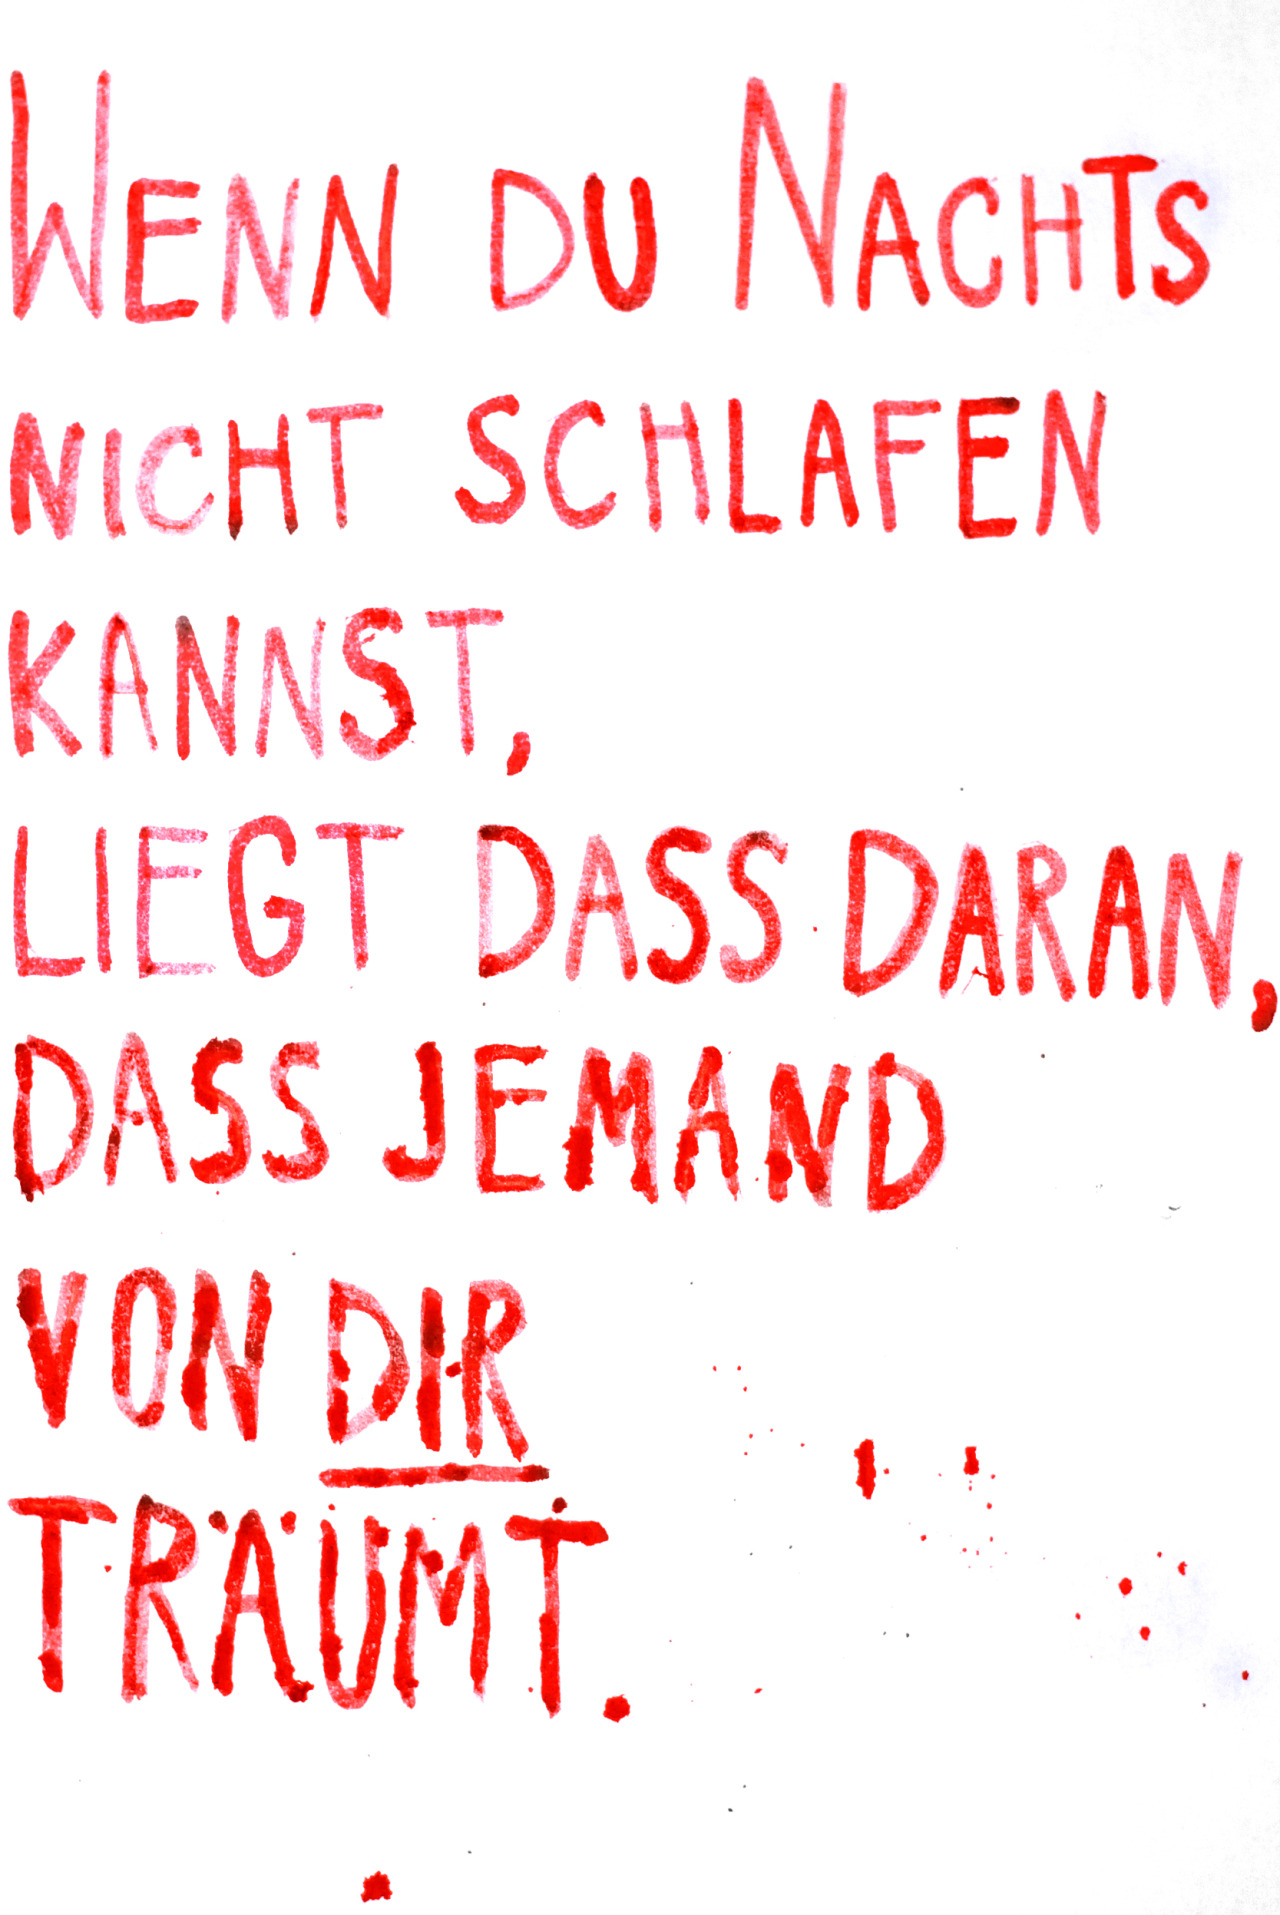 WENN DU NACHTS
NICHT SCHLAFEN
KANNST,
LIEGT DASS DARAN,
DASS JEMAND
VON DIR
TRÄUMT.